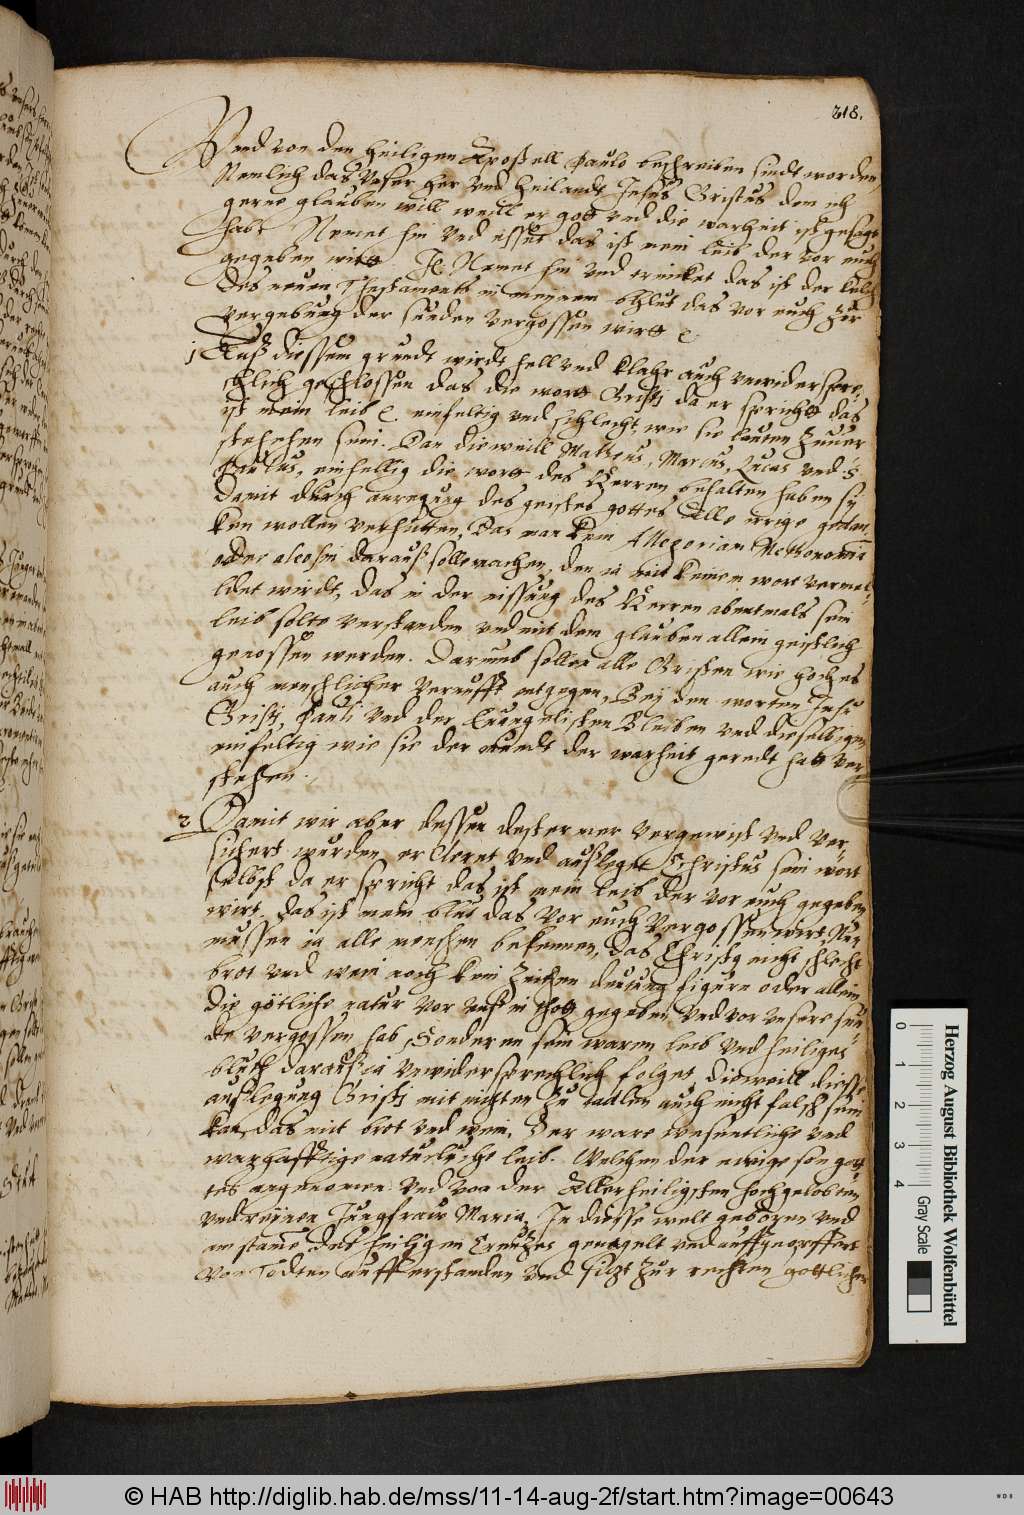 318.
Vnd von den heiligen Apostell Paulo beschreiben sindt worden,
Nemlich das Vnser Her vnd Heilandt Jesus Cristus dem ich
gerne glauben will weill er gott vnd die warheit ist gesagt
habe Nemet hin vnd esset das ist mein leib der vor euch
gegeben wirtt Jt. Nemet hin vnd trincket das ist der kelch
des neuen Thestaments in meynem bhlut das vor euch zur
Vergebung der sunden vergossen wirtt etc
1 Auß diessem grunde wirdt hell vnd klahr auch vnwiderspre-
chlich geschlossen das die wortt Cristj da er sprichtt das
ist mein leib etc. einfeltig vnd schlecht, wie sie lauten zuuer
stehehen sein. Dan die weill Matheus, Marcus, Lucas vnd S.
Paulus, einhellig die wortt des Herren behalten haben sy
damit durch anregung des geistes gottes alle irige gedan
ken wollen verhutten, Das man kein Allegoriam Methonomia
oder aleosin darauß solle machen, den ia mit keinem wort vermel-
ldet wirdt, das in der nissung des Herren abentmals sein
leib solte verstanden vnd mit dem glauben allein geistlich
genossen werden. Darumb sollen alle Cristen wie hoch es
auch menschlicher vernufft entgegen, Bey den worten Jesu
Cristj, Pauli vnd der Euangelisten bleiben vnd dieselbigen
einfeltig wie sie der mundt der warheit geredt hatt ver
stehen.
2 Damit wir aber dessen dester mer vergewist vnd ver-
sichert wurden, erkleret vnd ausslegtt Christus sein wort
selbst da er spricht das ist mein leib der vor euch gegeben
wirt. Das ist mein blut das vor euch vergossen wirt, Nun
mussen ia alle menschen bekennen, das Christus nicht schlecht
brot vnd wein noch kein zeichen deutung figure oder allein
die götliche natur vor vnß in thott gegeben vnd vor vnsere sun-
de vergossen hab, Sonderen sein waren leib vnd heiliges
blutt daraus ia vnwidersprechlich folget dieweill diesse
ausslegung Cristj mit nichten zu tadlen auch nicht falsch sein
kan, das mit brot vnd wein, Der ware wesentliche vnd
warhafftige naturliche leib. Welchen der ewige son gott-
tes angenomen Vnd von der Allerheiligsten hochgelobten
vnd reynen Jungfraw Maria, In disse welt geboren vnd
am stame des heiligen Creutzes genagelt vnd auffgeopffert
Von Todten aufferstanden vnd sitzt zur rechten gottlicher
Herzog August Bibliothek Wolfenbüttel
0 1 2 3 4
Gray Scale
© HAB http://diglib.hab.de/mss/11-14-aug-2f/start.htm?image=00643